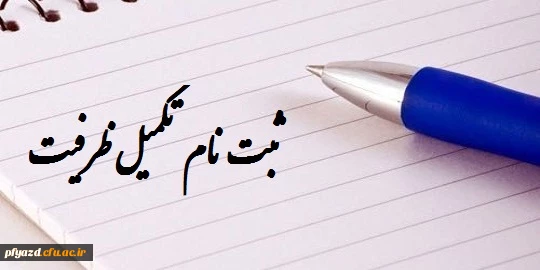 ثبت نام تکمیل ظرفیت
pfyazd.cfu.ac.ir